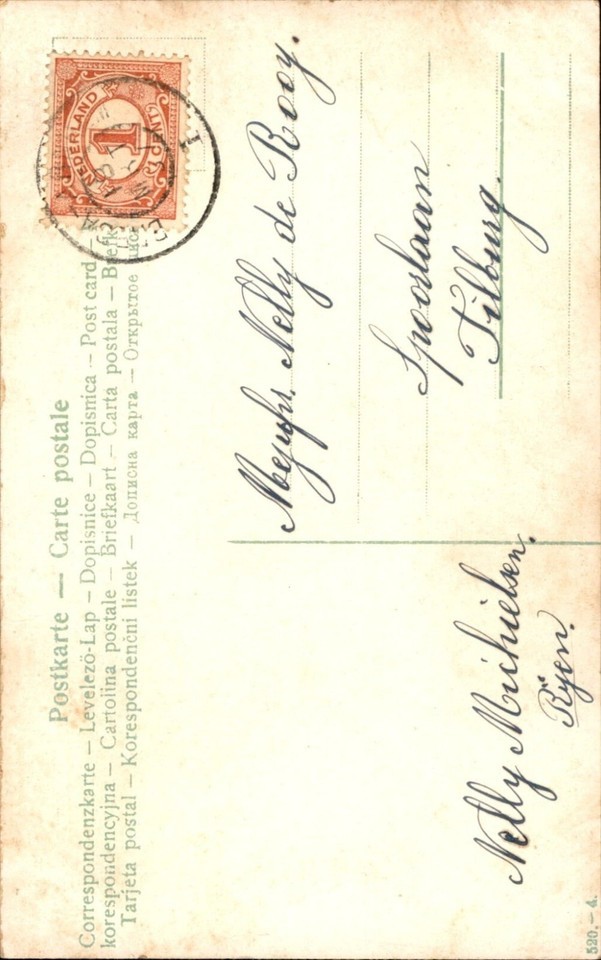 Postkarte — Carte postale
Correspondenzkarte – Levelező-Lap – Dopisnice – Dopisnica – Post card –
korespondencyjna – Cartolina postale – Briefkaart – Carta postala – Brefk
Tarjeta postal – Korespondenčni listek – Дописна карта – Открытое пис
NEDERLAND
1
CENT
Mejufr. Nelly de Rooy.
Spoorlaan
Tilburg.
Nelly Michielsen.
Rijen.
520.–4.